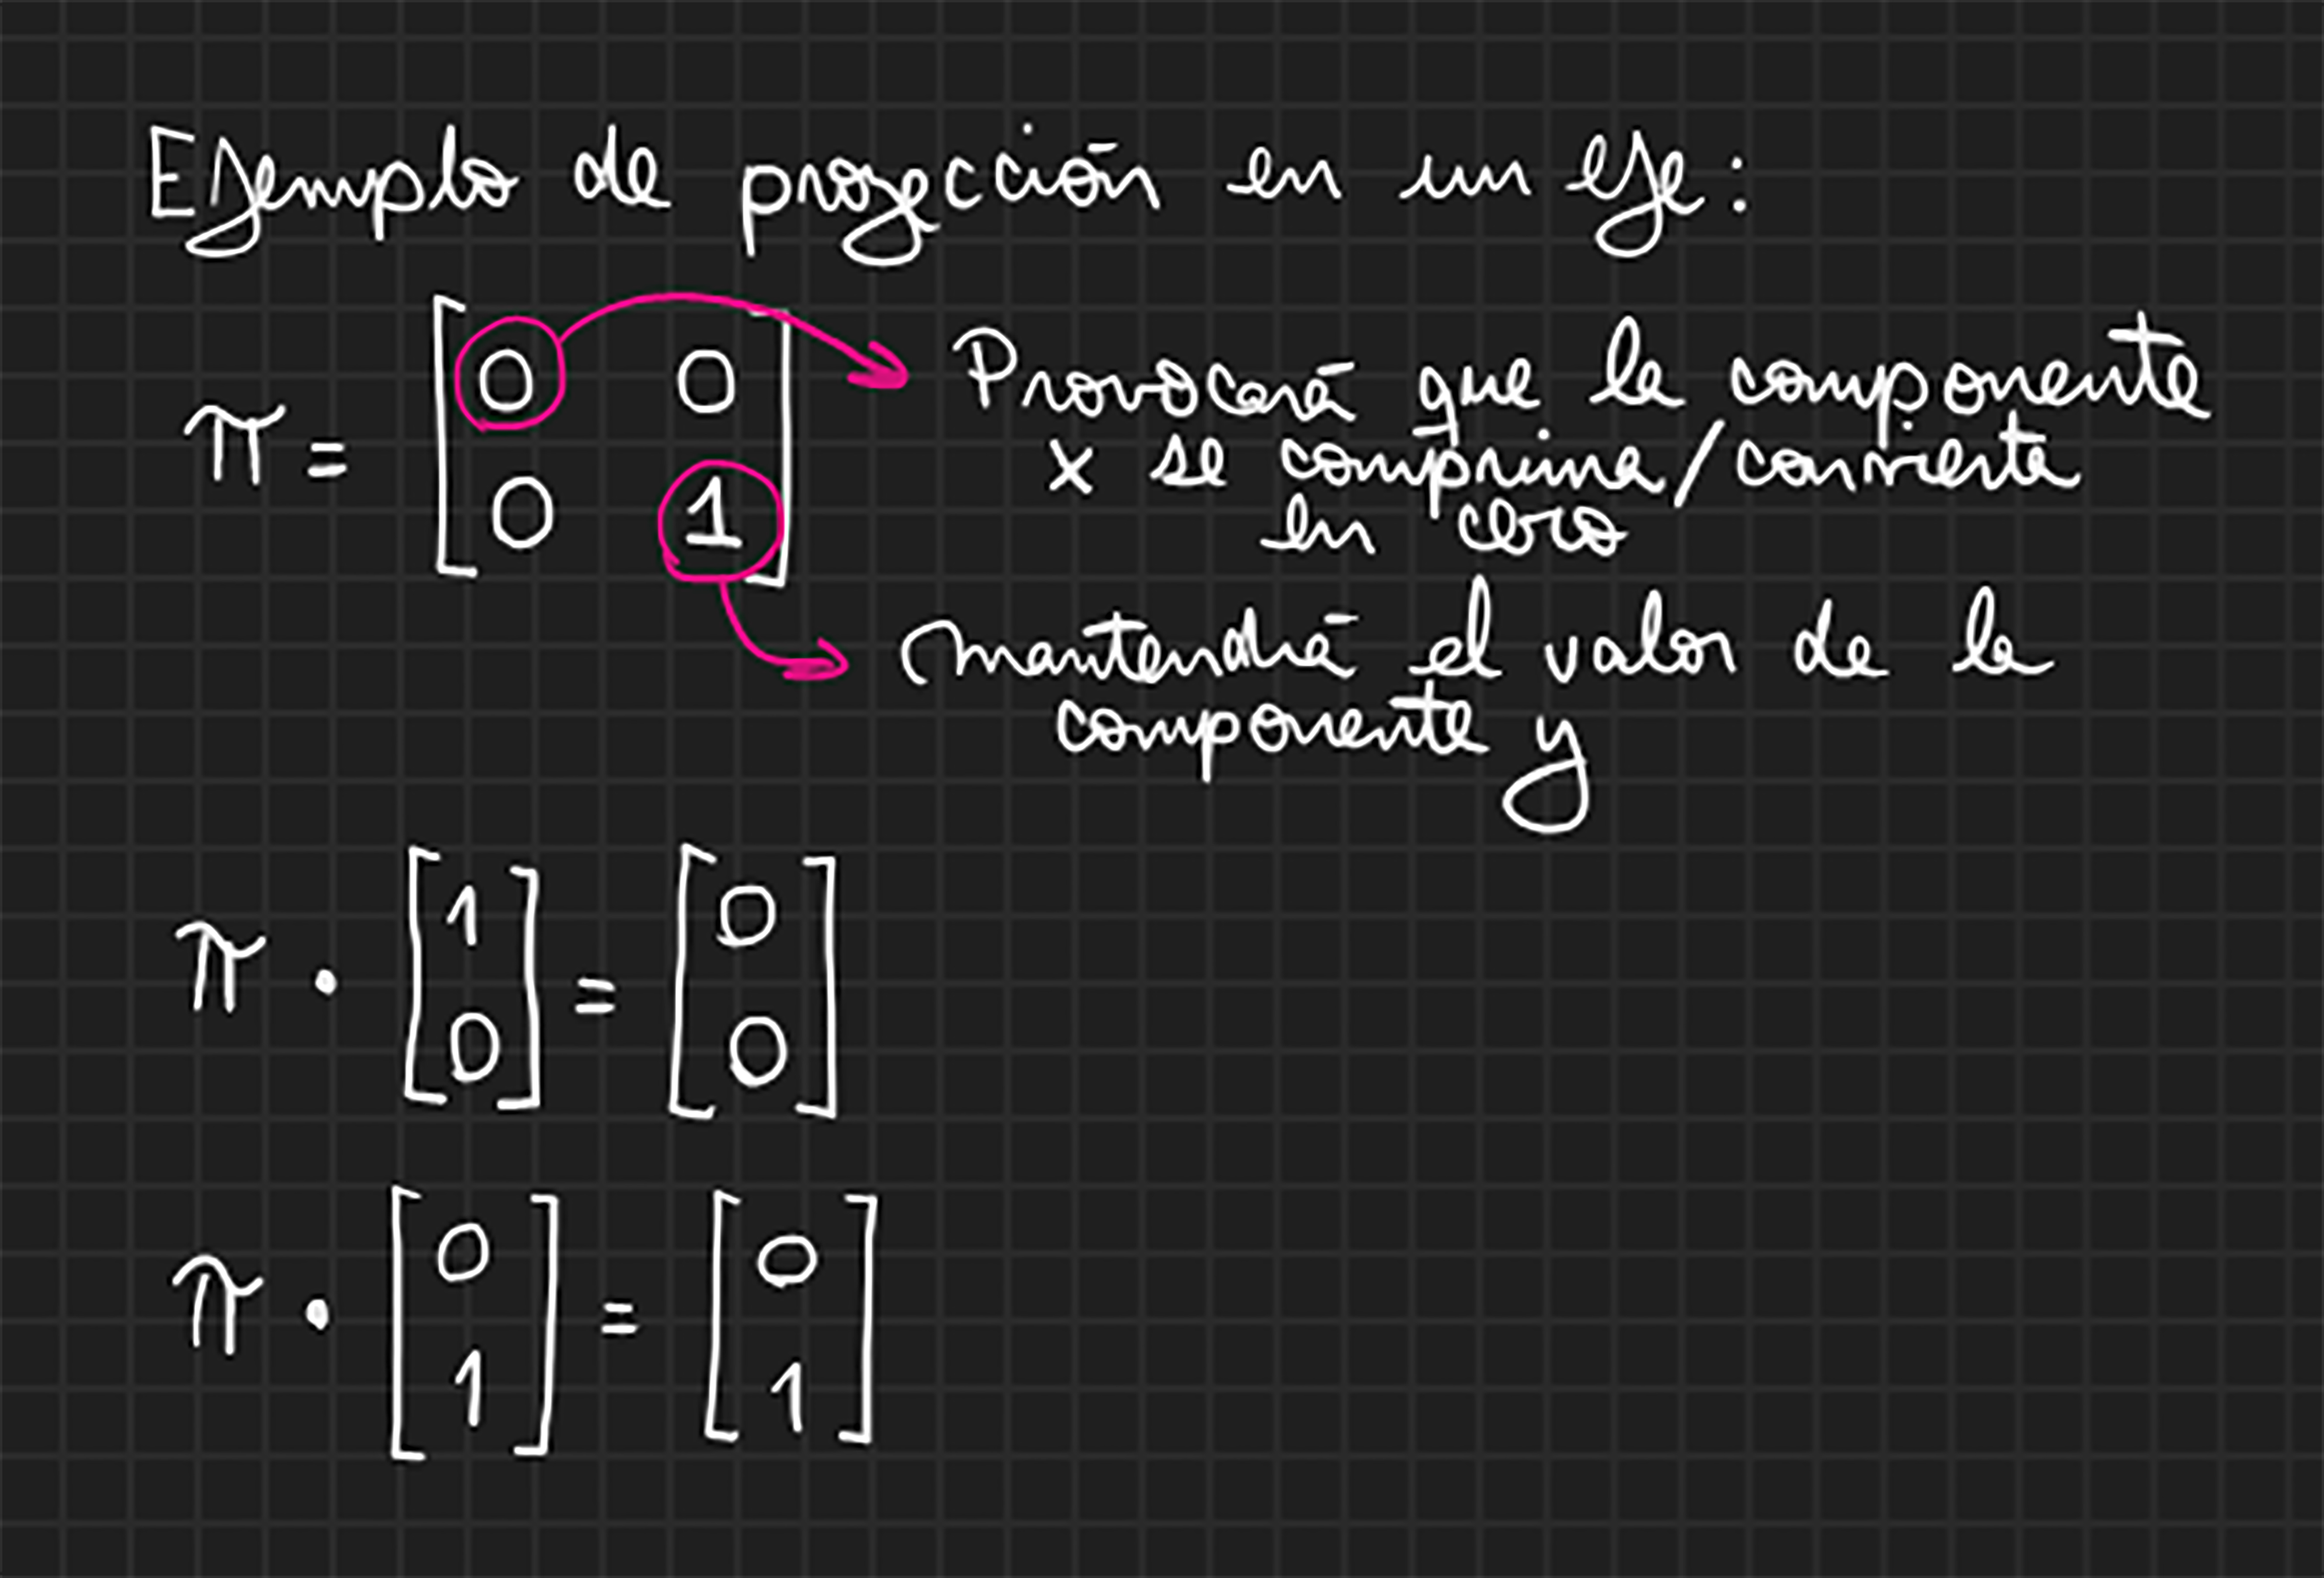 Ejemplo de proyección en un eje:
π = [ 0 0
0 1 ]
Provocará que la componente
x se comprima/convierta
en cero
mantendrá el valor de la
componente y
π · [ 1 0 ] = [ 0 0 ]
π · [ 0 1 ] = [ 0 1 ]